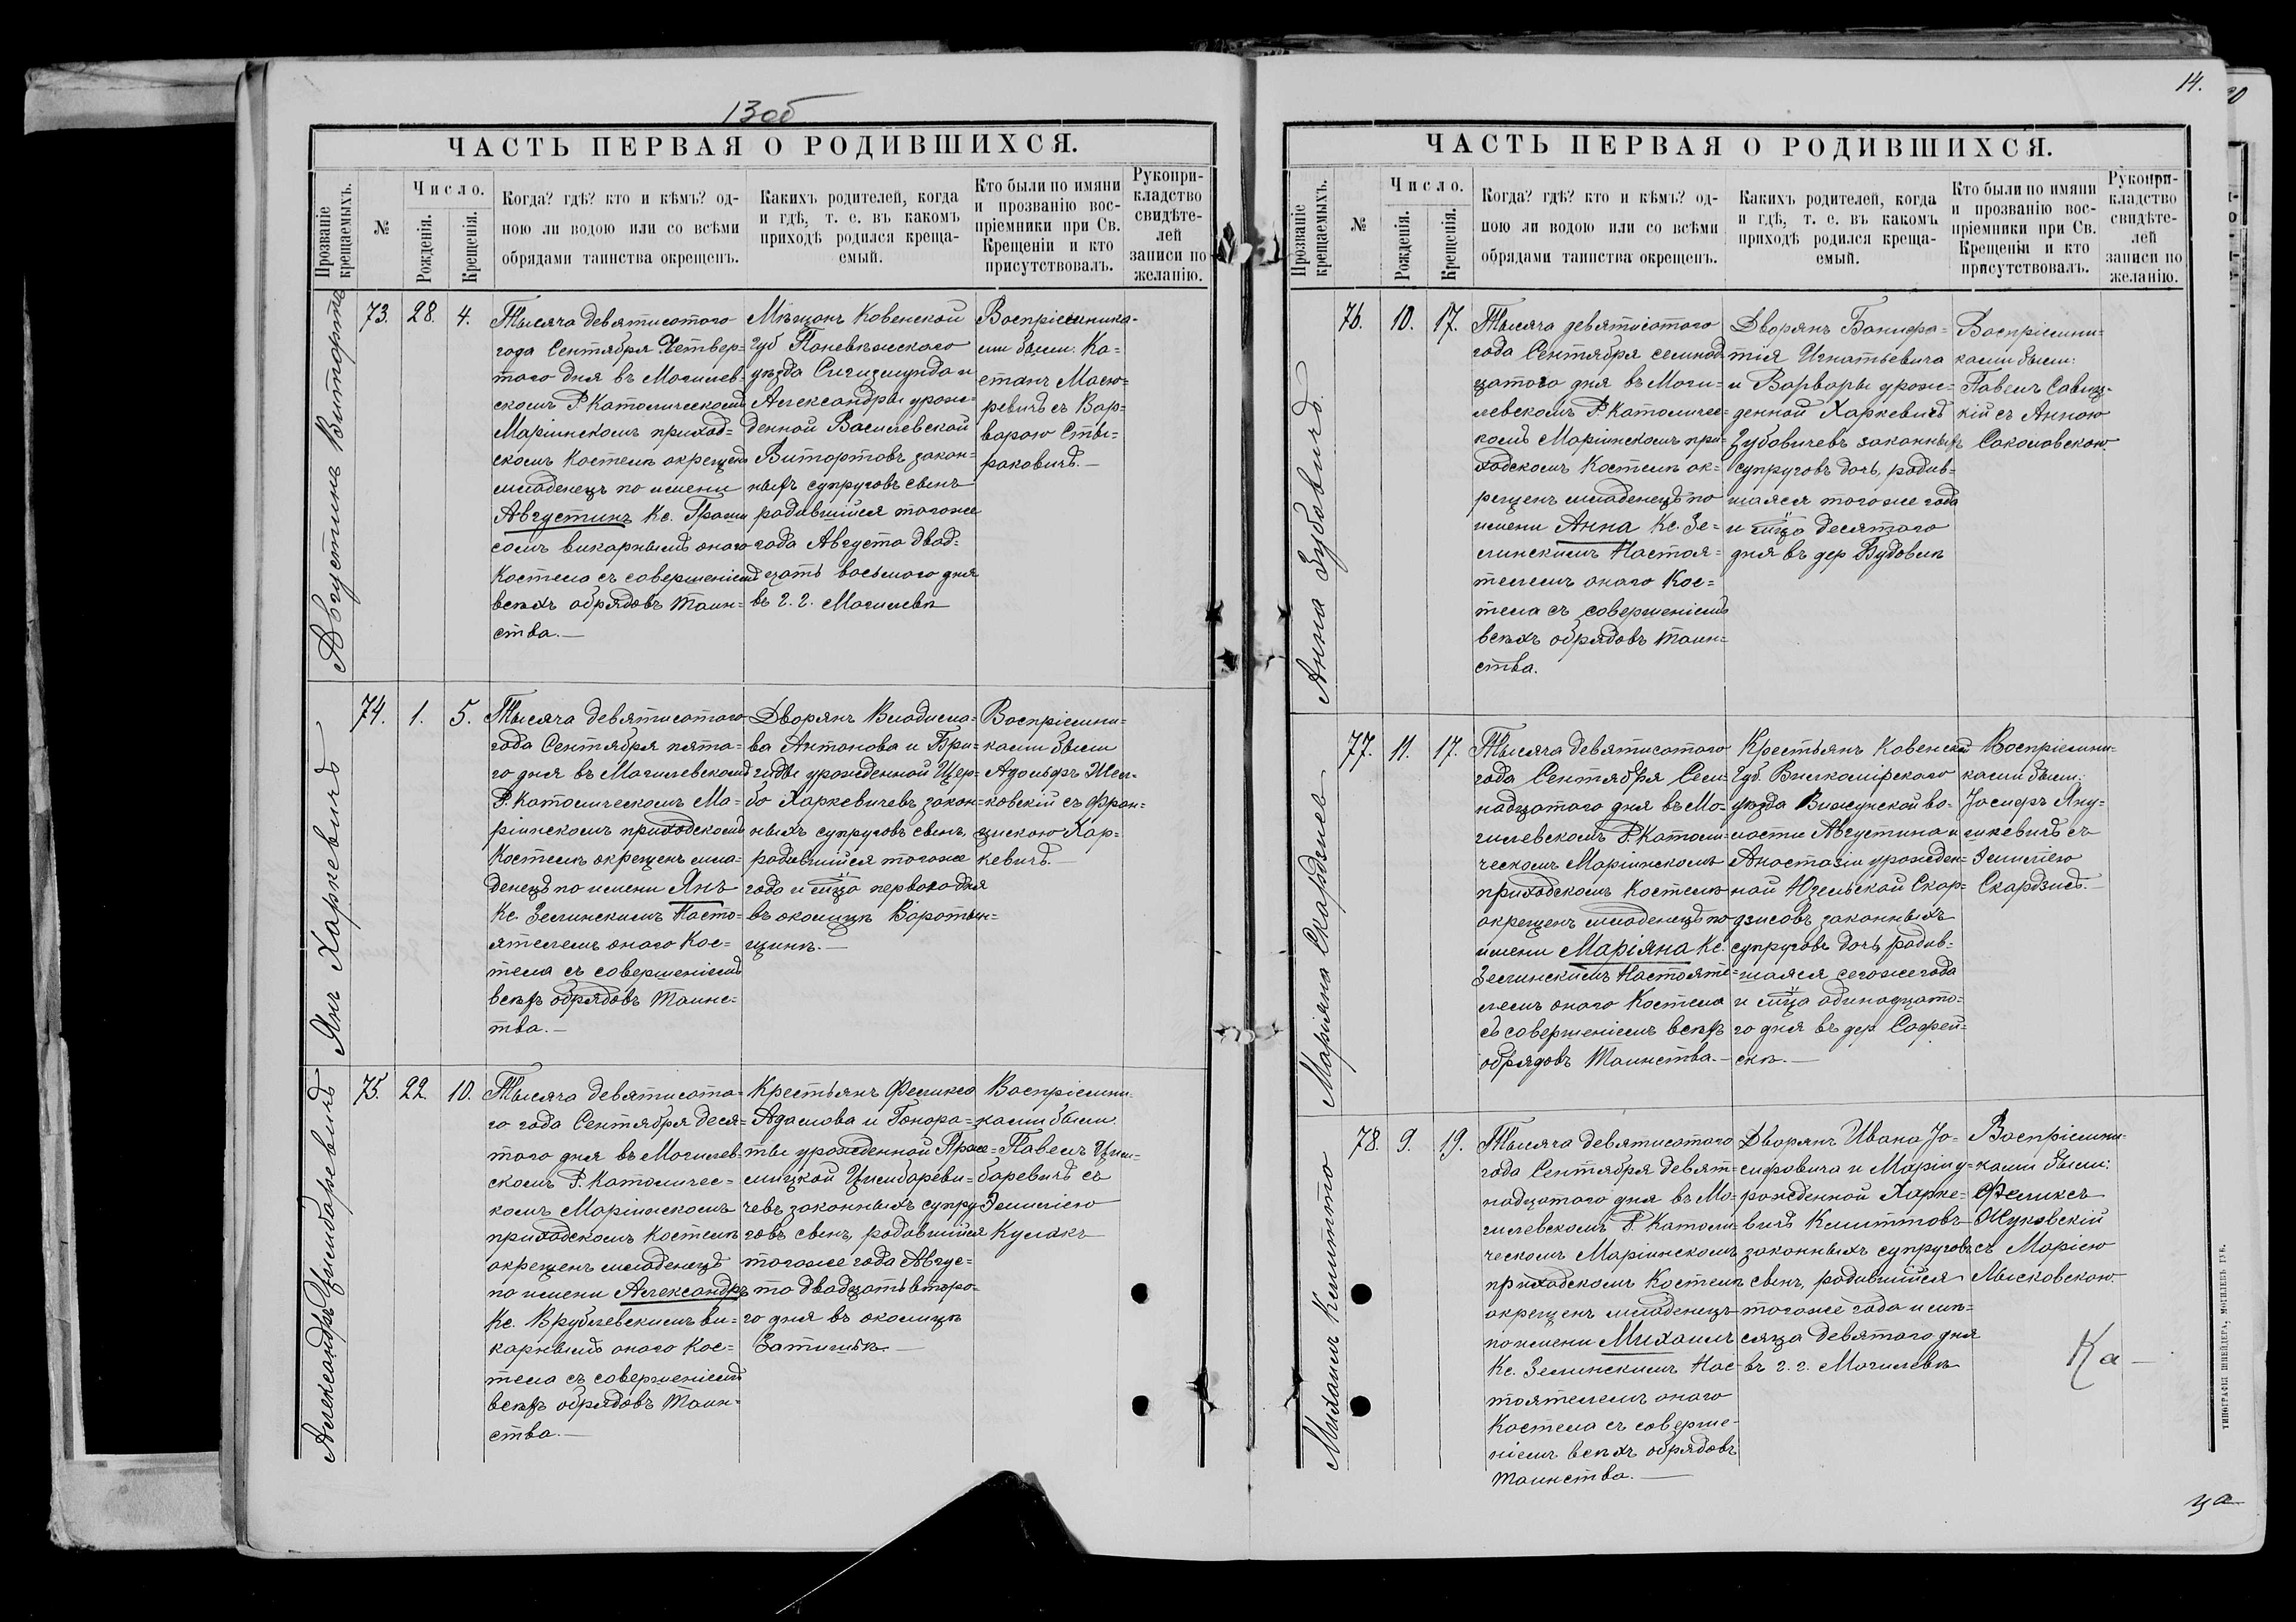 13об
ЧАСТЬ ПЕРВАЯ О РОДИВШИХСЯ.
Прозваніе крещаемыхъ.
№
Число.
Рожденія.
Крещенія.
Когда? гдѣ? кто и кѣмъ? од-
ною ли водою или со всѣми
обрядами таинства окрещенъ.
Какихъ родителей, когда
и гдѣ, т. е. въ какомъ
приходѣ родился креща-
емый.
Кто были по имяни
и прозванію вос-
пріемники при Св.
Крещеніи и кто
присутствовалъ.
Рукопри-
кладство
свидѣте-
лей
записи по
желанію.
Августинъ Витортъ
73.
28.
4.
Тысяча девятисотого
года Сентября Четвер=
того дня въ Могилев=
скомъ Р. Католическомъ
Маріинскомъ приход=
скомъ Костелѣ окрещенъ
младенецъ по имени
Августинъ Кс.
сомъ викарнымъ оного
Костела съ совершеніемъ
всѣхъ обрядовъ Таин=
ства.—
Мѣщанъ Ковенской
Губ Поневѣжского
уѣзда Сигизмунда и
Александры урож=
денной Василевской
Витортовъ закон=
ныхъ супруговъ сынъ
родившійся тогоже
года Августа двад=
цать восьмого дня
въ г. г. Могилевѣ
Воспріемника-
ми были: Ка=
етанъ Масю=
ревичъ съ Вар=
варою Сты=
раковичъ.—
Янъ Харкевичъ
74.
1.
5.
Тысяча девятисотого
года Сентября пято=
го дня въ Могилевскомъ
Р. Католическомъ Ма=
ріинскомъ приходскомъ
Костелѣ окрещенъ мла=
денецъ по имени Янъ
Кс. Зелинскимъ Насто=
ятелемъ оного Кос=
тела съ совершеніемъ
всѣхъ обрядовъ Таинс=
тва.—
Дворянъ Владисла=
ва Антонова и Бри=
гиды урожденной Щер=
бо Харкевичевъ закон=
ныхъ супруговъ сынъ,
родившійся тогоже
года и мѣца первого дня
въ околицѣ Воротын=
щинѣ.—
Воспріемни=
ками были
Адольфъ Жел=
ковскій съ Фран=
цискою Хар=
кевичъ.—
Александръ Цимбаревичъ
75.
22.
10.
Тысяча девятисото=
го года Сентября деся=
того дня въ Могилев=
скомъ Р. Католичес=
комъ Маріинскомъ
приходскомъ Костелѣ
окрещенъ младенецъ
по имени Александръ
Кс. Врублевскимъ ви=
карнымъ оного Кос=
тела съ совершеніемъ
всѣхъ обрядовъ Таин=
ства.—
Крестьянъ Феликса
Адамова и Гонора=
ты урожденной
Цимбареви=
чевъ законныхъ супру
говъ сынъ, родившійся
тогоже года Авгус=
та двадцать второ=
го дня въ околицѣ
Затишьѣ.—
Воспріемни=
ками были:
Павелъ Цим=
баревичъ съ
Эмиліею
Кулакъ
14.
ЧАСТЬ ПЕРВАЯ О РОДИВШИХСЯ.
Прозваніе крещаемыхъ.
№
Число.
Рожденія.
Крещенія.
Когда? гдѣ? кто и кѣмъ? од-
ною ли водою или со всѣми
обрядами таинства окрещенъ.
Какихъ родителей, когда
и гдѣ, т. е. въ какомъ
приходѣ родился креща-
емый.
Кто были по имяни
и прозванію вос-
пріемники при Св.
Крещеніи и кто
присутствовалъ.
Рукопри-
кладство
свидѣте-
лей
записи по
желанію.
Анна Зубовичъ.
76.
10.
17.
Тысяча девятисотого
года Сентября семнад
цатого дня въ Моги=
левскомъ Р. Католичес=
комъ Маріинскомъ при=
ходскомъ Костелѣ ок=
рещенъ младенецъ по
имени Анна Кс. Зе=
линскимъ Настоя=
телемъ оного Кос=
тела съ совершеніемъ
всѣхъ обрядовъ Таин=
ства.
Дворянъ Бонифа=
тія Игнатьевича
и Варвары урож=
денной Харкевичъ
Зубовичевъ законныхъ
супруговъ дочь, родив=
шаяся тогоже года
и мѣца десятого
дня въ дер Будовѣ
Воспріемни=
ками были:
Павелъ Савиц=
кій съ Анною
Соколовскою.
Маріяна Скардзиев
77.
11.
17.
Тысяча девятисотого
года Сентября Сем=
надцатого дня въ Мо=
гилевскомъ Р. Католи=
ческомъ Маріинскомъ
приходскомъ Костелѣ
окрещенъ младенецъ по
имени Маріяна Кс.
Зелинскимъ Настояте=
лемъ оного Костела
съ совершеніемъ всѣхъ
обрядовъ Таинства.—
Крестьянъ Ковенской
Губ. Вилкомірского
уѣзда Вижунской во=
лости Августина и
Анастазіи урожден=
ной Юзельской Скар=
дзисовъ законныхъ
супруговъ дочь, родив=
шаяся сегоже года
и мѣца одинадцато=
го дня въ дер. Софей=
скѣ.—
Воспріемни=
ками были:
Іосифъ Яну=
ликевичъ съ
Эмиліею
Скардзисъ.—
Михаилъ Климтто
78.
9.
19.
Тысяча девятисотого
года Сентября девят=
надцатого дня въ Мо=
гилевскомъ Р. Католи=
ческомъ Маріинскомъ
приходскомъ Костелѣ
окрещенъ младенецъ
по имени Михаилъ
Кс. Зелинскимъ Нас=
тоятелемъ оного
Костела съ соверше=
ніемъ всѣхъ обрядовъ
Таинства.—
Дворянъ Ивана Іо=
сифовича и Маріи у=
рожденной Харке=
вичъ Климттовъ
законныхъ супруговъ
сынъ, родившійся
тогоже года и мѣ=
сяца девятого дня
въ г. г. Могилевѣ
Воспріемни=
ками были:
Феликсъ
Жуковскій
съ Маріею
Мысковскою
Ка—
ца
ТИПОГРАФІЯ ШНЕЙДЕРА, МОГИЛЕВЪ ГУБ.